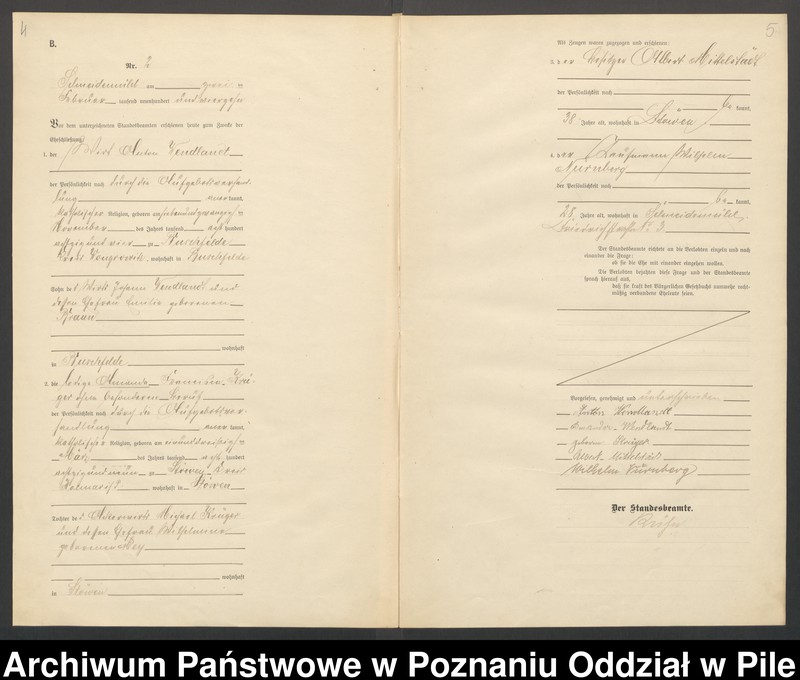 4
B.
Nr. 2
Schneidemühl am zwei
Februar tausend neunhundert und vierzehn
Vor dem unterzeichneten Standesbeamten erschienen heute zum Zwecke der
Eheschließung:
1. der Wirt Anton Wendlandt
der Persönlichkeit nach durch die Aufgebotsverhand-
lung anerkannt,
katholischer Religion, geboren am siebenundzwanzigsten
November des Jahres tausend acht hundert
achtzig und vier zu
Kreis , wohnhaft in
Sohn des Wirts Johann Wendlandt und
dessen Ehefrau Emilie geborenen
wohnhaft
in
2. die ledige Amanda Franziska Krü-
ger ohne besonderen Beruf
der Persönlichkeit nach durch die Aufgebotsver-
handlung anerkannt,
katholischer Religion, geboren am einunddreißigsten
März des Jahres tausend acht hundert
achtzig und neun zu Stöwen Kreis
Kolmar wohnhaft in Stöwen
Tochter des Michael Krüger
und dessen Ehefrau Wilhelmine
geborenen
wohnhaft
in Stöwen
5
Als Zeugen waren zugezogen und erschienen:
3. der Besitzer Albert Mittelstädt
der Persönlichkeit nach
kannt,
38 Jahre alt, wohnhaft in Stöwen
4. der Kaufmann Wilhelm
Nürnberg
der Persönlichkeit nach
kannt,
28 Jahre alt, wohnhaft in Schneidemühl,
Friedrichstraße Nr. 3.
Der Standesbeamte richtete an die Verlobten einzeln und nach
einander die Frage:
ob sie die Ehe mit einander eingehen wollen.
Die Verlobten bejahten diese Frage und der Standesbeamte
sprach hierauf aus,
daß sie kraft des Bürgerlichen Gesetzbuchs nunmehr recht-
mäßig verbundene Eheleute seien.
Vorgelesen, genehmigt und unterschrieben
Anton Wendlandt
Amanda Wendlandt
geborene Krüger
Albert Mittelstädt
Wilhelm Nürnberg
Der Standesbeamte.
Archiwum Państwowe w Poznaniu Oddział w Pile